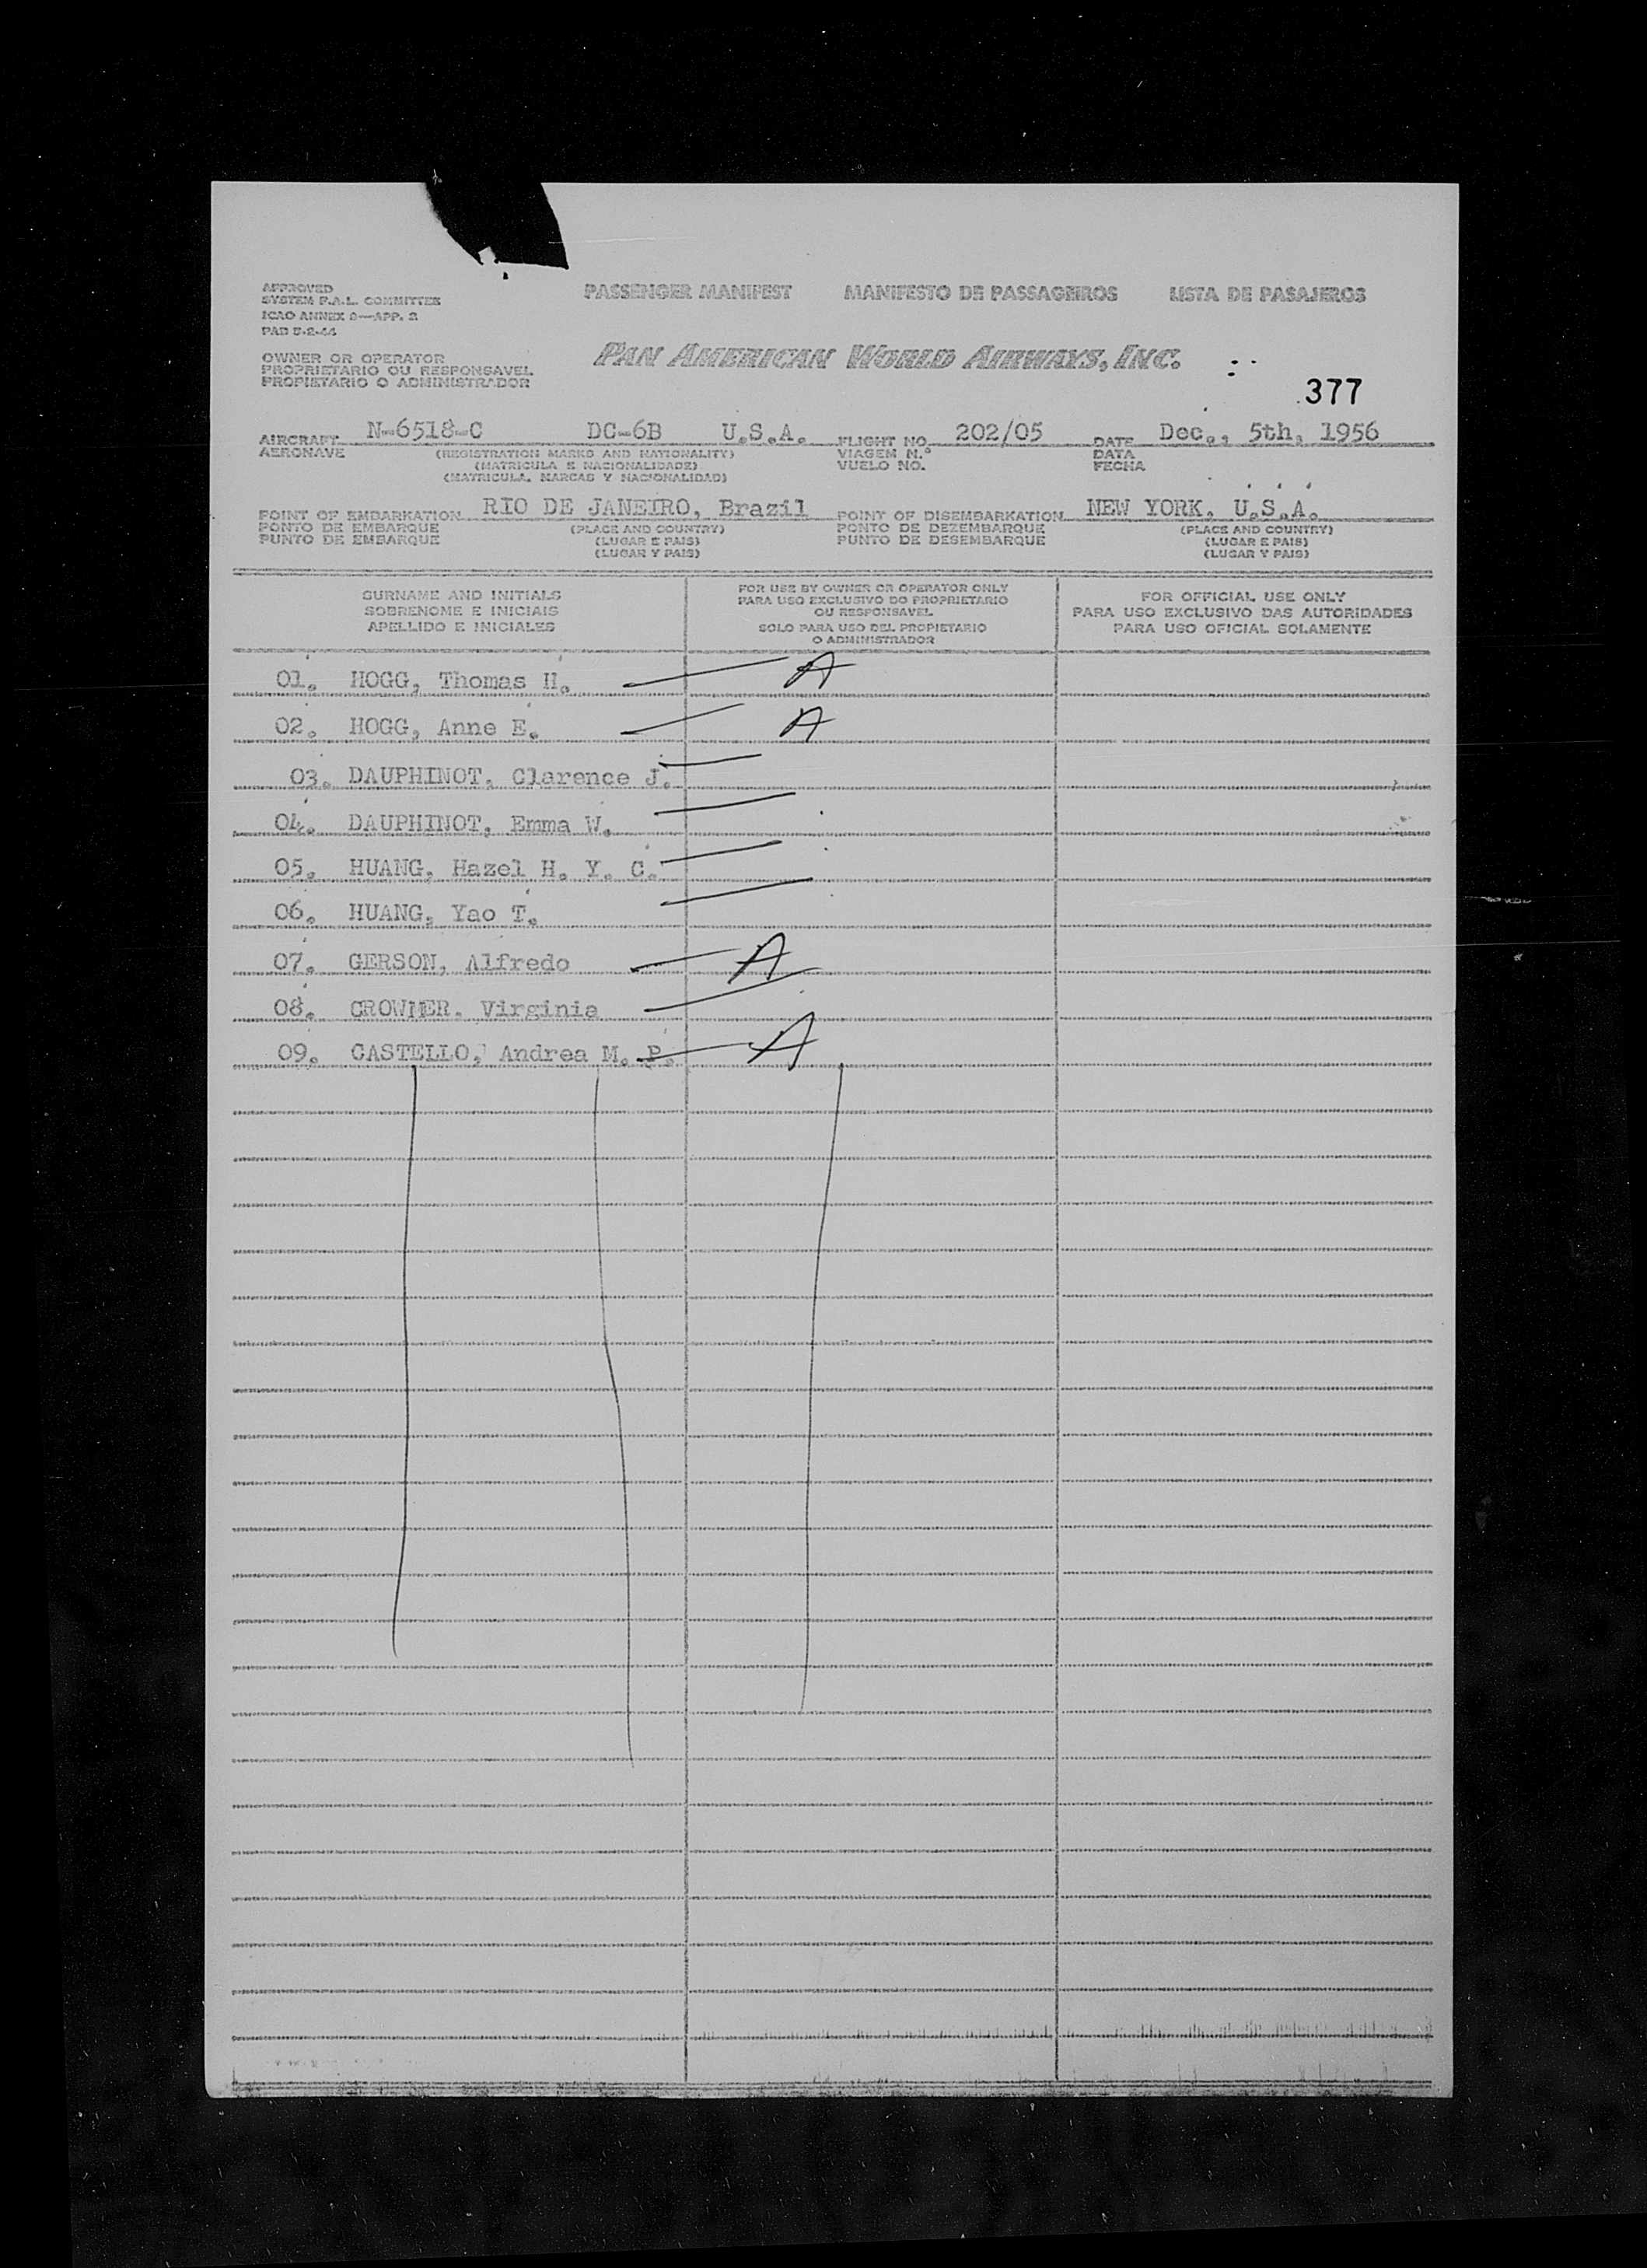 APPROVED
SYSTEM F.A.L. COMMITTEE
ICAO ANNEX 9—APP. 2
PAD 5-2-44
PASSENGER MANIFEST MANIFESTO DE PASSAGEIROS LISTA DE PASAJEROS
OWNER OR OPERATOR
PROPRIETARIO OU RESPONSAVEL
PROPIETARIO O ADMINISTRADOR
PAN AMERICAN WORLD AIRWAYS, INC.
377
AIRCRAFT N-6518-C DC-6B U.S.A. FLIGHT NO. 202/05 DATE Dec., 5th, 1956
AERONAVE (REGISTRATION MARKS AND NATIONALITY) VIAGEM N.° DATA
(MATRICULA E NACIONALIDADE) VUELO NO. FECHA
(MATRICULA, MARCAS Y NACIONALIDAD)
POINT OF EMBARKATION RIO DE JANEIRO, Brazil POINT OF DISEMBARKATION NEW YORK, U.S.A.
PONTO DE EMBARQUE (PLACE AND COUNTRY) PONTO DE DEZEMBARQUE (PLACE AND COUNTRY)
PUNTO DE EMBARQUE (LUGAR E PAIS) PUNTO DE DESEMBARQUE (LUGAR E PAIS)
(LUGAR Y PAIS) (LUGAR Y PAIS)
SURNAME AND INITIALS
SOBRENOME E INICIAIS
APELLIDO E INICIALES
FOR USE BY OWNER OR OPERATOR ONLY
PARA USO EXCLUSIVO DO PROPRIETARIO
OU RESPONSAVEL
SOLO PARA USO DEL PROPIETARIO
O ADMINISTRADOR
FOR OFFICIAL USE ONLY
PARA USO EXCLUSIVO DAS AUTORIDADES
PARA USO OFICIAL SOLAMENTE
01. HOGG, Thomas H. A
02. HOGG, Anne E. A
03. DAUPHINOT, Clarence J.
04. DAUPHINOT, Emma W.
05. HUANG, Hazel H. Y. C.
06. HUANG, Yao T.
07. GERSON, Alfredo A
08. Virginia
09. CASTELLO, Andrea M. P. A